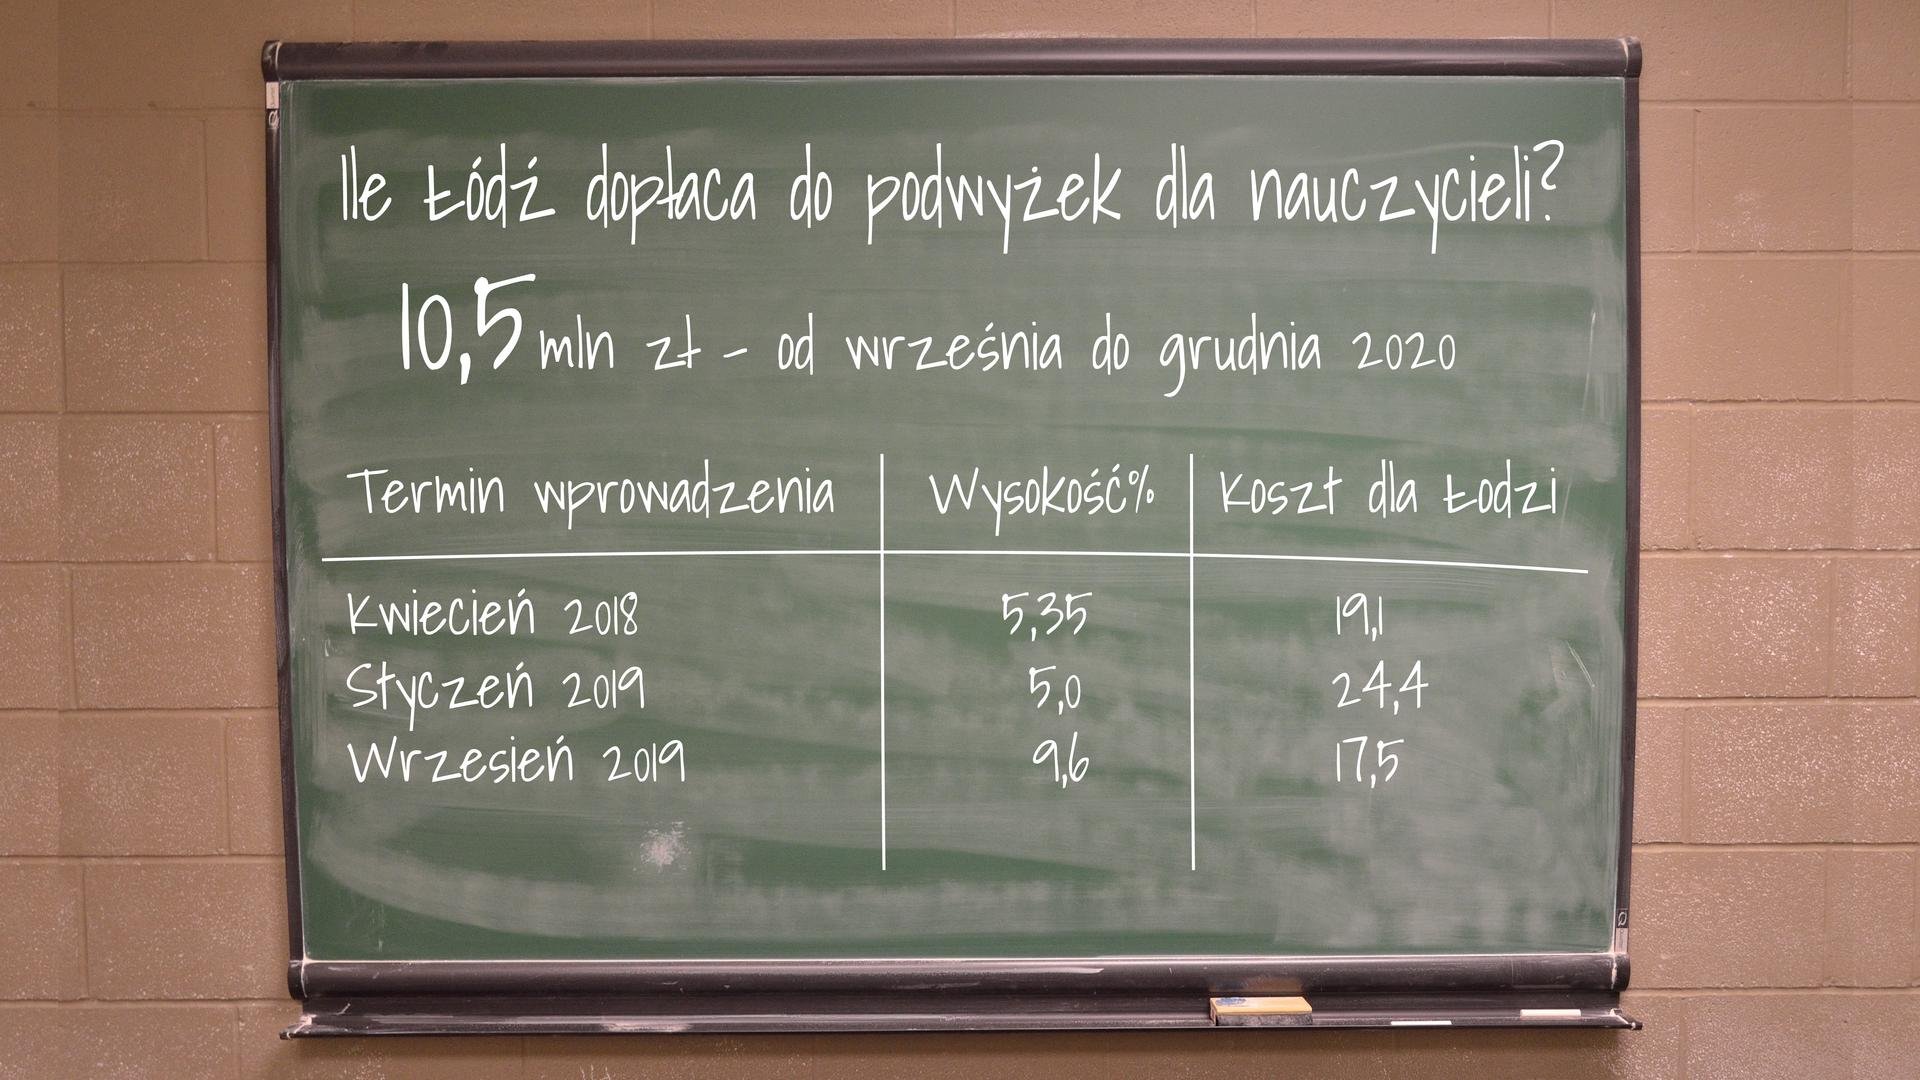 Ile Łódź dopłaca do podwyżek dla nauczycieli?
10,5 mln zł - od września do grudnia 2020
Termin wprowadzenia Wysokość% Koszt dla Łodzi
Kwiecień 2018 5,35 19,1
Styczeń 2019 5,0 24,4
Wrzesień 2019 9,6 17,5